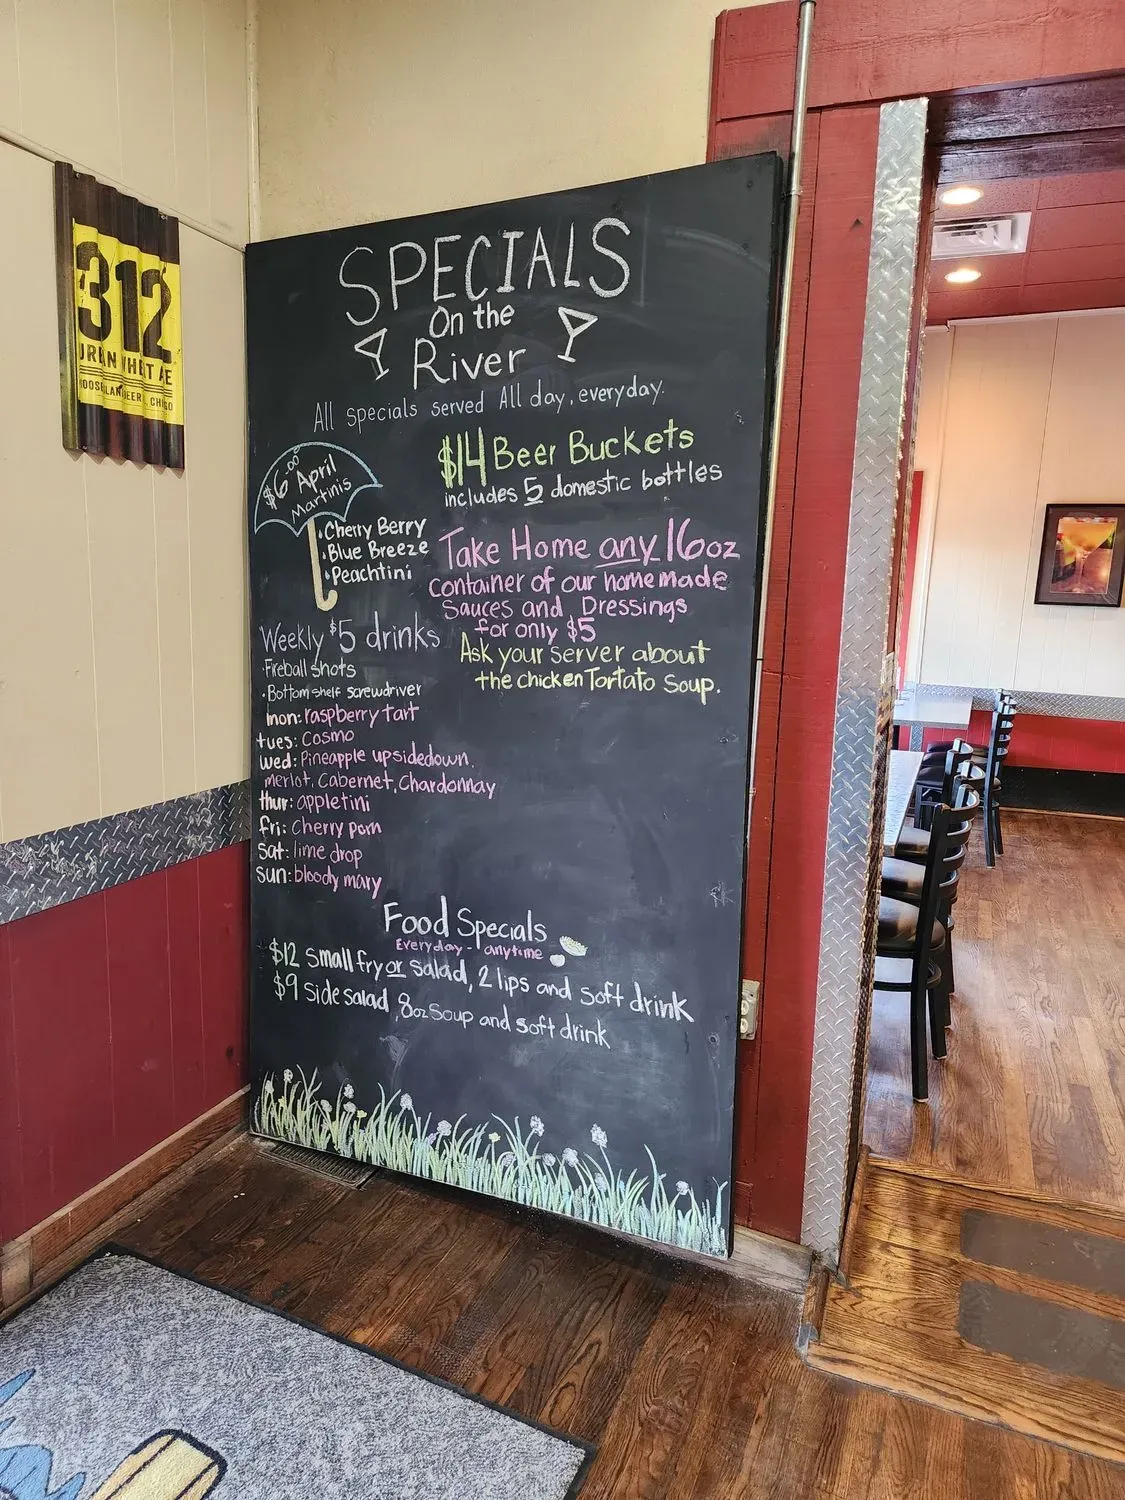 312
URBAN WHEAT ALE
GOOSE ISLAND BEER CO., CHICAGO
SPECIALS
On the
River
All specials served All day, everyday.
$6.00 April
Martinis
• Cherry Berry
• Blue Breeze
• Peachtini
$14 Beer Buckets
includes 5 domestic bottles
Take Home any 16oz
container of our homemade
Sauces and Dressings
for only $5
Ask your server about
the chicken Tortato Soup.
Weekly $5 drinks
• Fireball shots
• Bottom shelf screwdriver
mon: raspberry tart
tues: Cosmo
wed: Pineapple upsidedown,
merlot, Cabernet, Chardonnay
thur: appletini
fri: Cherry pom
sat: lime drop
sun: bloody mary
Food Specials
Everyday - anytime
$12 small fry or salad, 2 lips and soft drink
$9 side salad, 8oz soup and soft drink